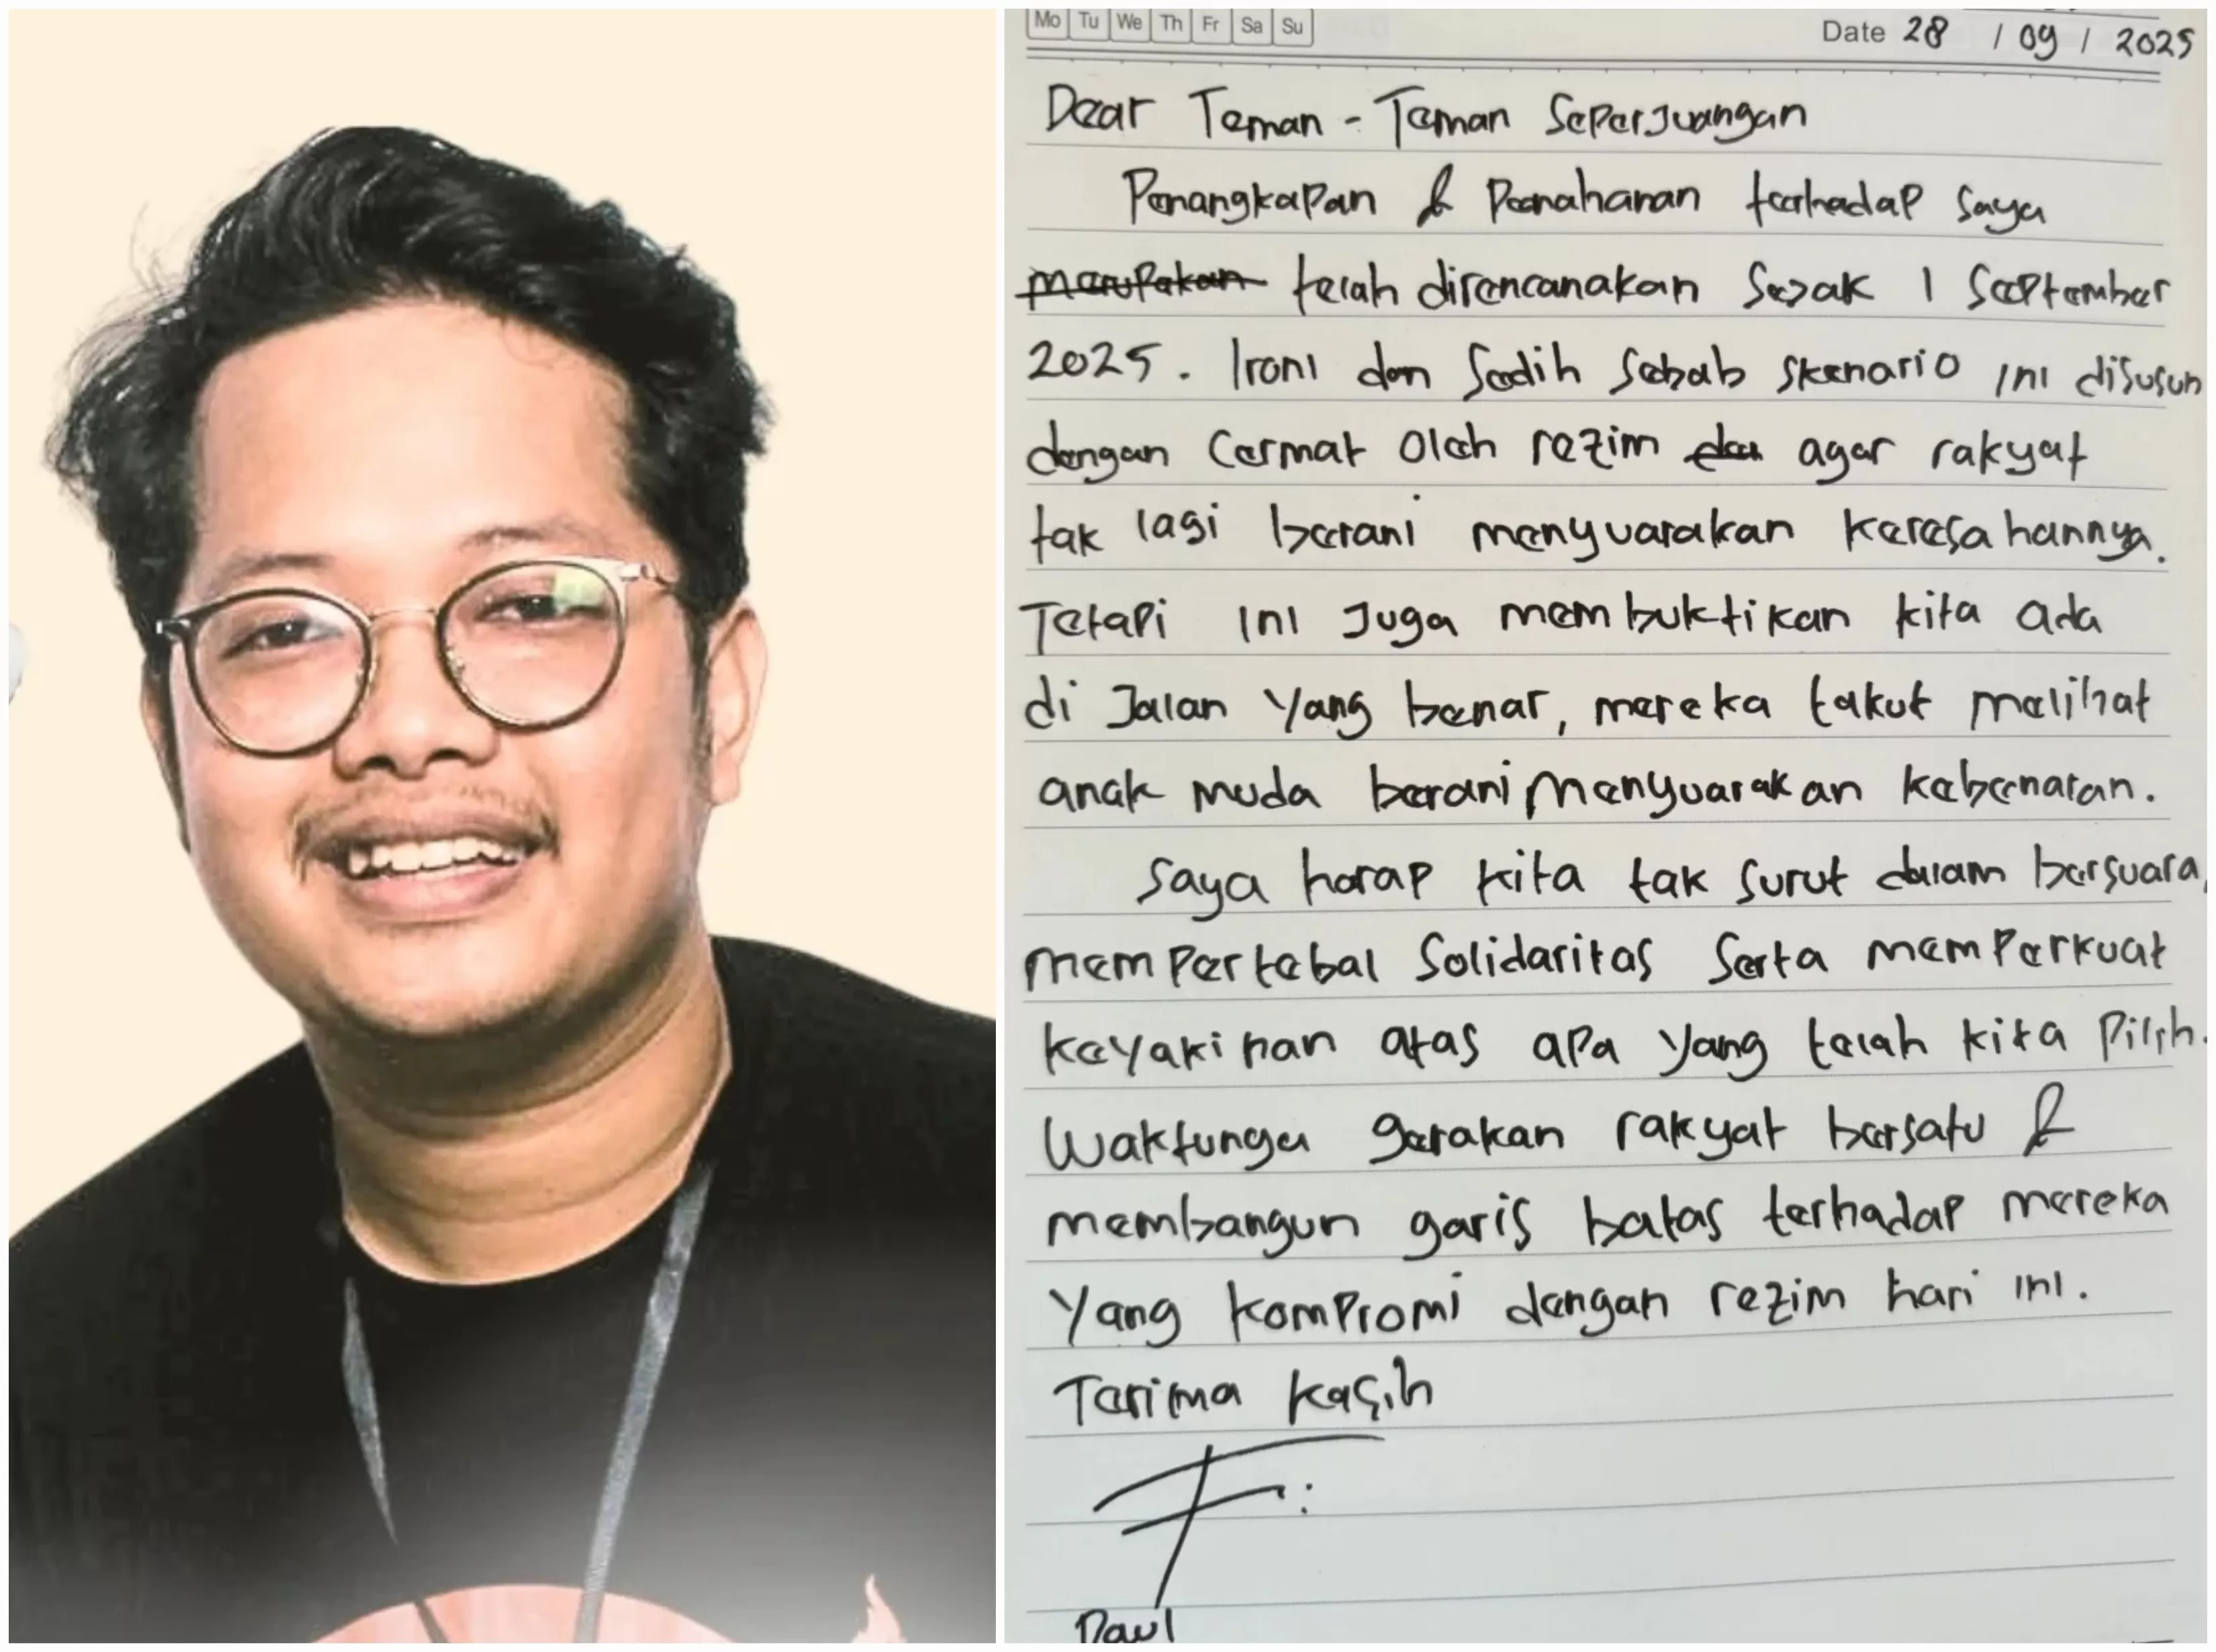 Mo Tu We Th Fr Sa Su
Date 28 / 09 / 2025
Dear Teman - Teman Seperjuangan
Penangkapan & Penahanan terhadap saya
merupakan telah direncanakan Sejak 1 September
2025. Ironi dan Sedih Sebab Skenario ini disusun
dengan Cermat Oleh rezim agar rakyat
tak lagi berani menyuarakan keresahannya.
Tetapi ini Juga membuktikan kita ada
di Jalan Yang benar, mereka takut melihat
anak muda berani Menyuarakan kebenaran.
Saya harap kita tak surut dalam bersuara,
mempertebal Solidaritas Serta memperkuat
keyakinan atas apa yang telah kita Pilih.
Waktunya gerakan rakyat bersatu &
membangun garis batas terhadap mereka
Yang kompromi dengan rezim hari ini.
Terima kasih
Paul